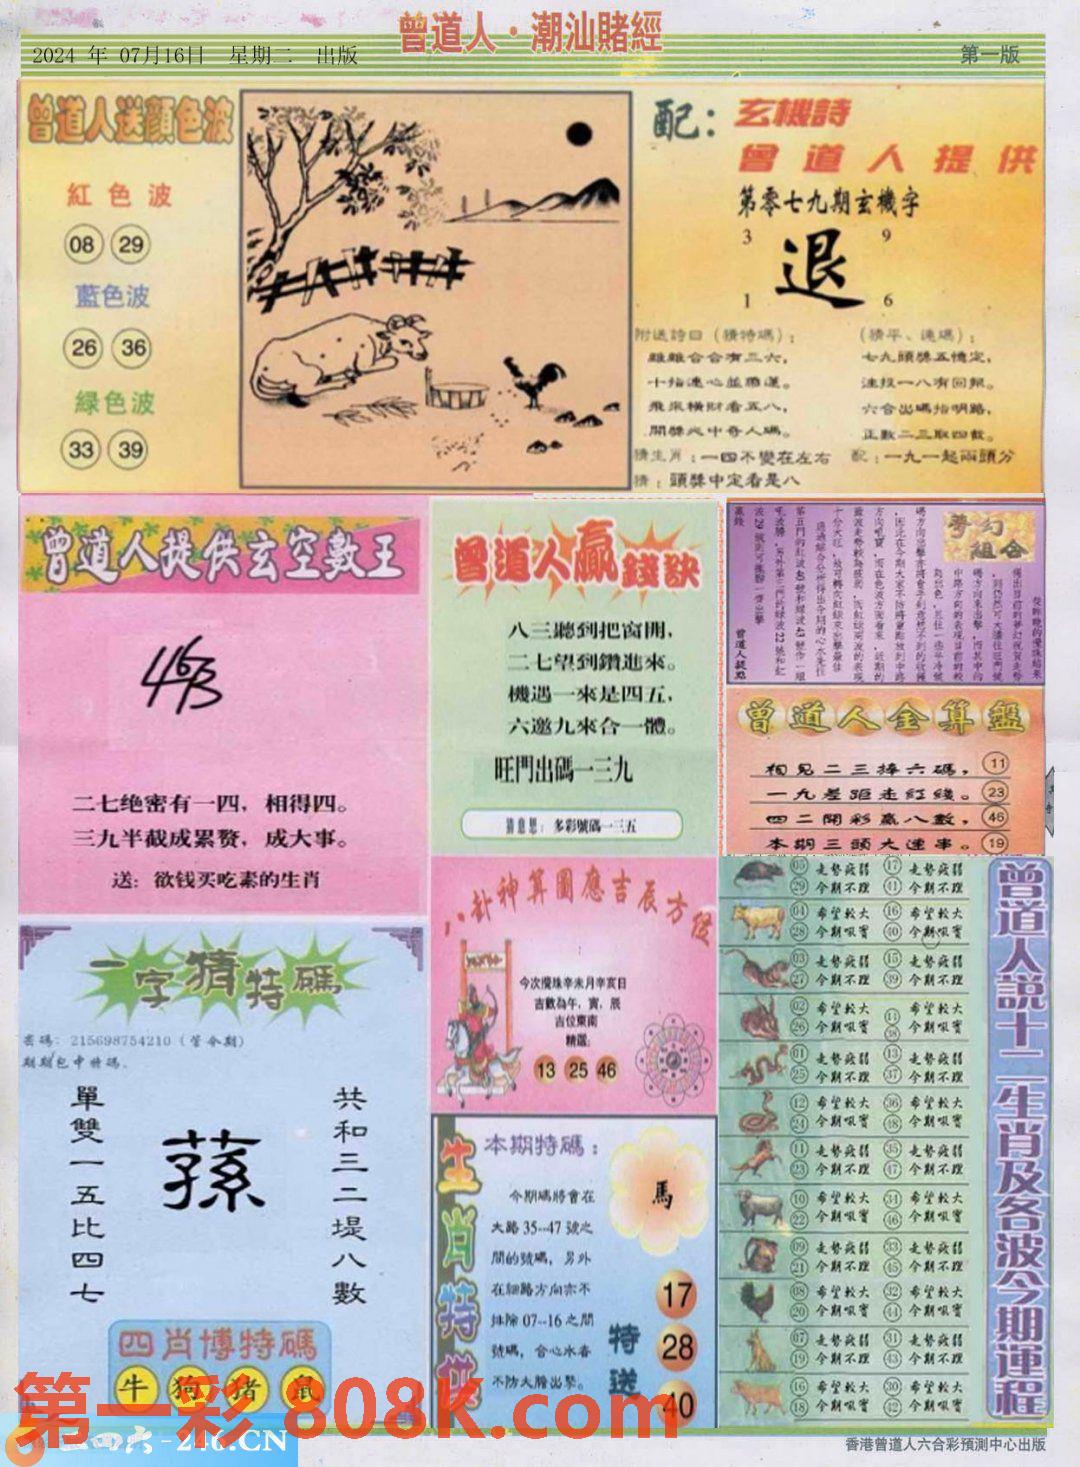 曾道人·潮汕賭經
2024 年 07月16日 星期二 出版
第一版
曾道人送顔色波
紅色波
08 29
藍色波
26 36
綠色波
33 39
配：玄機詩
曾道人提供
第零七九期玄機字
3 9
退
1 6
附送詩曰（猜特碼）：
雞雞合合有三六，
十指連心並聯運。
飛來橫財看五八，
開獎必中奇人碼。
猜生肖：一四不變在左右
猜：頭獎中定看是八
（猜平、連碼）：
七九頭獎五億定，
注投一八有回報。
六合出碼指明路，
正數二三取四數。
配：一九一起兩頭分
曾道人提供玄空數王
463
二七绝密有一四，相得四。
三九半截成累赘，成大事。
送：欲钱买吃素的生肖
曾道人贏錢訣
八三聽到把窗開，
二七望到鑽進來。
機遇一來是四五，
六邀九來合一體。
旺門出碼一三九
猜意思：多彩號碼一三五
夢幻組合
曾道人提點
曾道人金算盤
相見二三捧六碼， 11
一九差距走紅綫。 23
四二開彩贏八數， 46
本期三頭大連串。 19
八卦神算圖應吉辰方位
今次攪珠辛未月辛亥日
吉數為午，寅，辰
吉位東南
精選：
13 25 46
一字猜特碼
密碼：215698754210（管今期）
期期包中特碼．
單雙一五比四七
蓀
共和三二堤八數
四肖博特碼
牛 狗 豬 鼠
生肖特供
本期特碼：
今期碼將會在
大路35--47號之
間的號碼，另外
在細路方向亦不
排除07--16之間
號碼，合心水者
不防大膽出擊。
馬
特送
17
28
40
曾道人説十二生肖及各波今期運程
05 走勢疲弱 17 走勢疲弱
29 今期不理 41 今期不理
04 希望較大 16 希望較大
28 今期吸實 40 今期吸實
03 走勢疲弱 15 走勢疲弱
27 今期不理 39 今期不理
02 希望較大 14 希望較大
26 今期吸實 38 今期吸實
01 走勢疲弱 13 走勢疲弱
25 今期不理 37 今期不理
12 希望較大 36 希望較大
24 今期吸實 48 今期吸實
11 走勢疲弱 35 走勢疲弱
23 今期不理 47 今期不理
10 希望較大 34 希望較大
22 今期吸實 46 今期吸實
09 走勢疲弱 33 走勢疲弱
21 今期不理 45 今期不理
08 希望較大 32 希望較大
20 今期吸實 44 今期吸實
07 走勢疲弱 31 走勢疲弱
19 今期不理 43 今期不理
16 希望較大 30 希望較大
18 今期吸實 42 今期吸實
第一彩 808K.com
四六-246.CN
香港曾道人六合彩預測中心出版